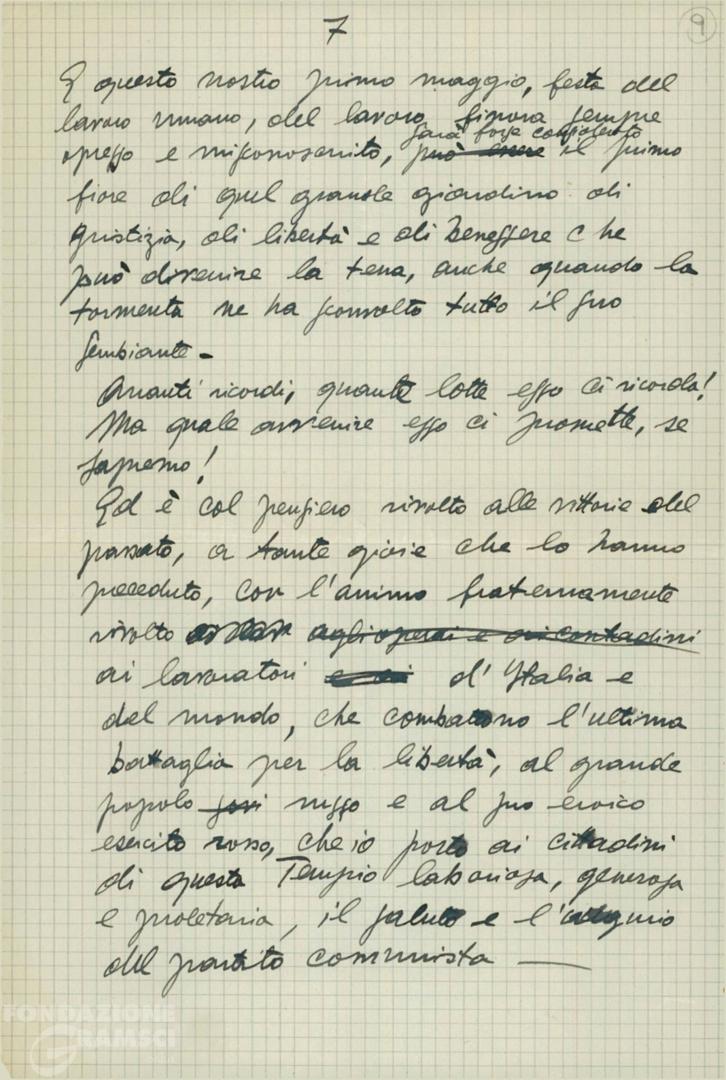 7
9
E questo nostro primo maggio, festa del
lavoro umano, del lavoro finora sempre
sarà forse
oppresso e misconosciuto, può essere il primo
fiore di quel grande giardino di
giustizia, di libertà e di benessere che
può divenire la terra, anche quando la
tormenta ne ha sconvolto tutto il suo
sembiante -
Quanti ricordi, quante lotte esso ci ricorda!
Ma quale avvenire esso ci promette, se
sapremo!
Ed è col pensiero rivolto alle vittorie del
passato, a tante gioie che lo hanno
preceduto, con l'animo fraternamente
rivolto agli operai e ai contadini
ai lavoratori e ai d'Italia e
del mondo, che combattono l'ultima
battaglia per la libertà, al grande
popolo russo e al suo eroico
esercito rosso, che io porto ai cittadini
di questa Tempio laboriosa, generosa
e proletaria, il saluto e l'augurio
del partito comunista —
FONDAZIONE
GRAMSCI